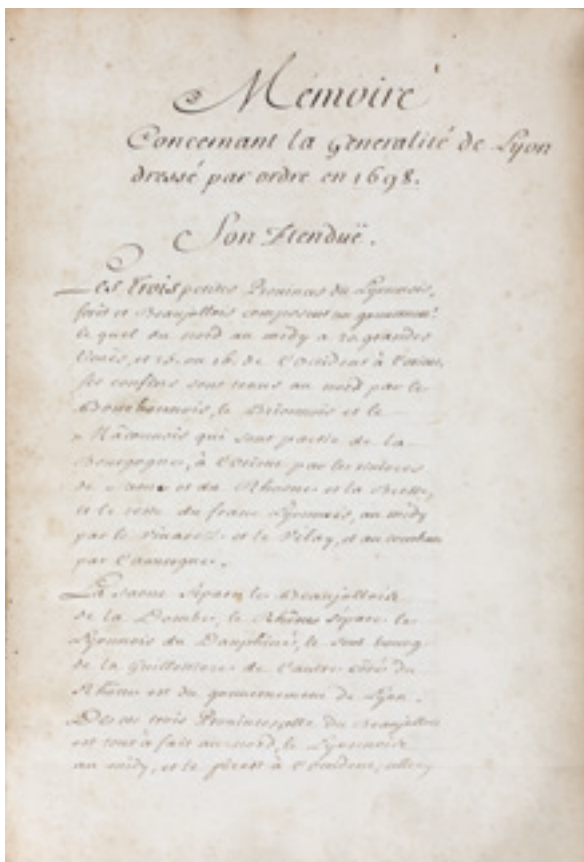 Memoire
Concernant la Generalité de Lyon
dressé par ordre en 1698.
Son Etenduë.
Les trois petites Provinces du Lyonnois,
forêt et Beaujollois composent un gouvernemt.
le quel du nord au midy a 20 grandes
lieuës, et 15. ou 16. de l'occident à l'orient.
ses confins sont tenus au nord par le
Bourbonnois, le Brionnois et le
Mâconnois qui sont partie de la
Bourgogne, à l'Orient par les rivieres
de Saone et du Rhosne et la Bresse,
et le reste du franc Lyonnois, au midy
par le Vivarez et le Vélay, et au couchant
par l'auvergne.
La Saone sépare le Beaujollois
de la Dombe, le Rhône sépare le
Lyonnois du Dauphiné, le seul bourg
de la Guillotiere de l'autre côté du
Rhône est du gouvernement de Lyon.
De ces trois Provinces celle du Beaujollois
est tout à fait au nord, le Lyonnois
au midy, et le forêt à l'occident,